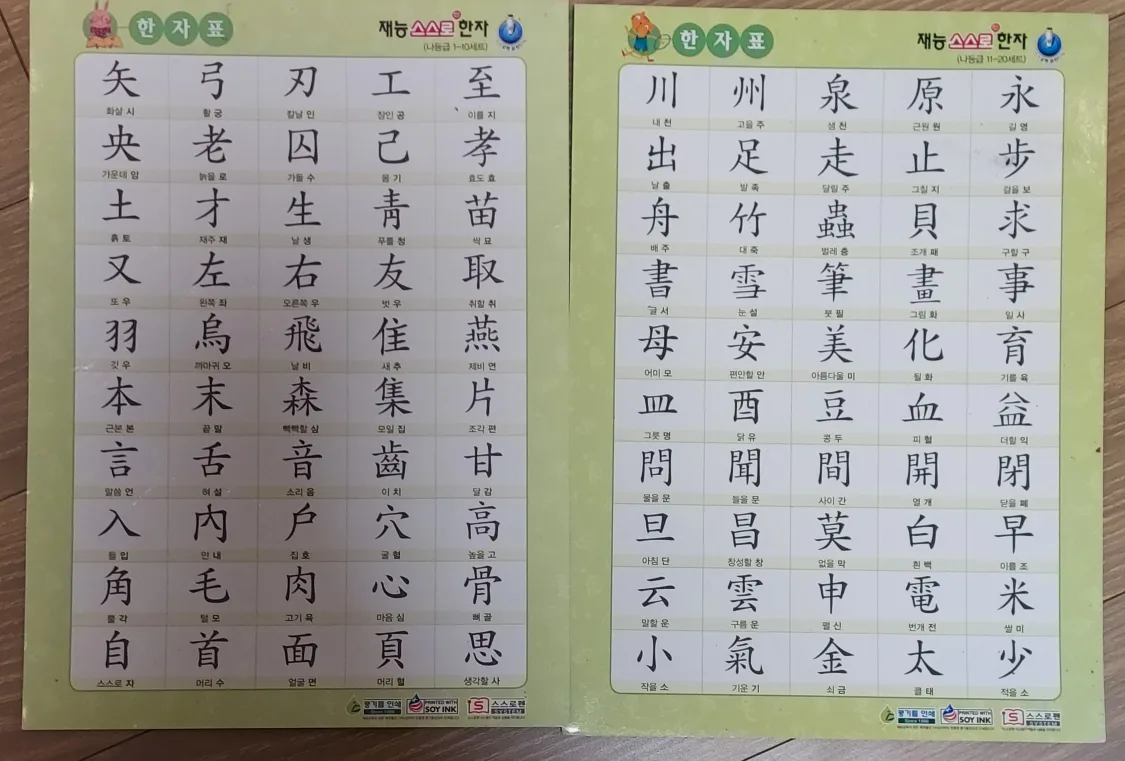 한자표
재능스스로한자
(나등급 1-10세트)
矢 弓 刃 工 至
화살 시 활 궁 칼날 인 장인 공 이를 지
央 老 囚 己 孝
가운데 앙 늙을 로 가둘 수 몸 기 효도 효
土 才 生 靑 苗
흙 토 재주 재 날 생 푸를 청 싹 묘
又 左 右 友 取
또 우 왼쪽 좌 오른쪽 우 벗 우 취할 취
羽 烏 飛 隹 燕
깃 우 까마귀 오 날 비 새 추 제비 연
本 末 森 集 片
근본 본 끝 말 빽빽할 삼 모일 집 조각 편
言 舌 音 齒 甘
말씀 언 혀 설 소리 음 이 치 달 감
入 內 戶 穴 高
들 입 안 내 집 호 굴 혈 높을 고
角 毛 肉 心 骨
뿔 각 털 모 고기 육 마음 심 뼈 골
自 首 面 頁 思
스스로 자 머리 수 얼굴 면 머리 혈 생각할 사
PRINTED WITH
SOY INK
스스로펜
SYSTEM
한자표
재능스스로한자
(나등급 11-20세트)
川 州 泉 原 永
내 천 고을 주 샘 천 근원 원 길 영
出 足 走 止 步
날 출 발 족 달릴 주 그칠 지 걸을 보
舟 竹 蟲 貝 求
배 주 대 죽 벌레 충 조개 패 구할 구
書 雪 筆 畫 事
글 서 눈 설 붓 필 그림 화 일 사
母 安 美 化 育
어미 모 편안할 안 아름다울 미 될 화 기를 육
皿 酉 豆 血 益
그릇 명 닭 유 콩 두 피 혈 더할 익
問 聞 間 開 閉
물을 문 들을 문 사이 간 열 개 닫을 폐
旦 昌 莫 白 早
아침 단 창성할 창 없을 막 흰 백 이를 조
云 雲 申 電 米
말할 운 구름 운 펼 신 번개 전 쌀 미
小 氣 金 太 少
작을 소 기운 기 쇠 금 클 태 적을 소
PRINTED WITH
SOY INK
스스로펜
SYSTEM